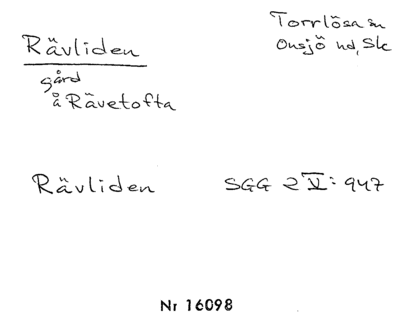 Rävliden
gård
å Rävetofta
Torrlösa sn
Onsjö hd, Sk
Rävliden SGG 2 V: 947
Nr 16098